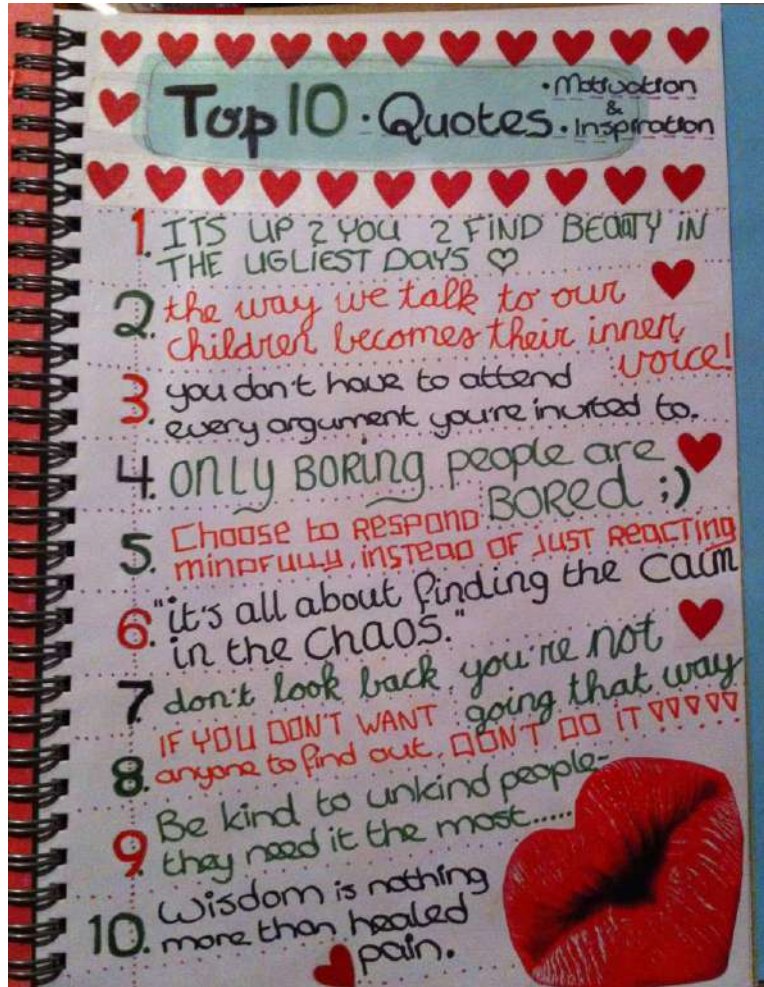 Top 10 · Quotes · Motivation & Inspiration
1. ITS UP 2 YOU 2 FIND BEAUTY IN
THE UGLIEST DAYS ♡
2. the way we talk to our
children becomes their inner
voice!
3. you don't have to attend
every argument you're invited to.
4. ONLY BORING people are
BORED ;)
5. Choose to RESPOND
minDFULLY, INSTEAD OF JUST REACTING
6. "it's all about finding the calm
in the CHAOS."
7 don't look back, you're not
going that way
8. IF YOU DON'T WANT
anyone to find out, DON'T DO IT
9. Be kind to unkind people-
they need it the most.....
10. Wisdom is nothing
more than healed
pain.